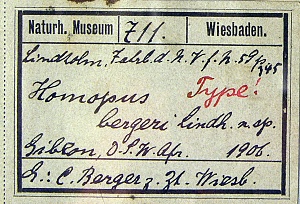 Naturh. Museum 711. Wiesbaden.
Lindholm, Jahrb. d. N. V. f. N. 59/345
Homopus Type!
bergeri Lindh. n. sp.
Gibeon, D. S. W. Afr. 1906.
G.: C. Berger z. Zt. Wiesb.